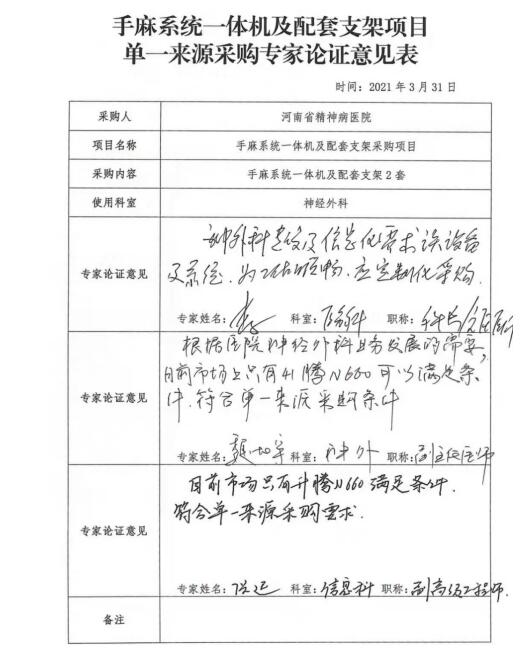 手麻系统一体机及配套支架项目
单一来源采购专家论证意见表
时间：2021 年 3 月 31 日
采购人 河南省精神病医院
项目名称 手麻系统一体机及配套支架采购项目
采购内容 手麻系统一体机及配套支架 2 套
使用科室 神经外科
神外科建设及信息化需求该设备
专家论证意见 及系统，为工作顺畅，应定制化采购。
专家姓名： 科室： 职称：
根据医院神经外科业务发展的需要，
目前市场上只有升腾N660可以满足条
专家论证意见 件，符合单一来源采购条件
专家姓名： 科室：神外 职称：副主任医师
目前市场只有升腾N660满足条件，
专家论证意见 符合单一来源采购需求。
专家姓名： 科室：信息科 职称：副高级工程师
备注